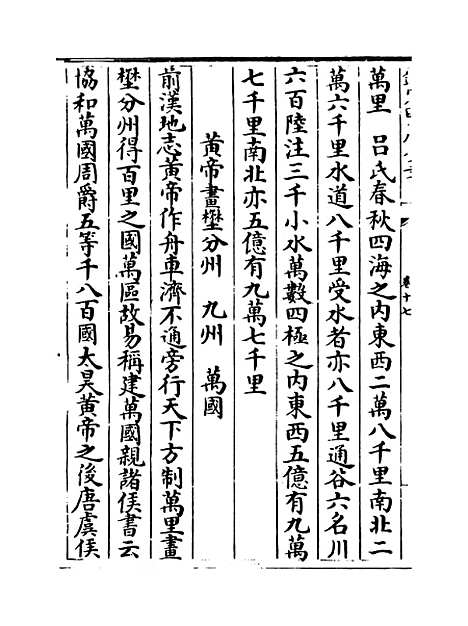 萬里　呂氏春秋四海之內東西二萬八千里南北二
萬六千里水道八千里受水者亦八千里通谷六名川
六百陸注三千小水萬數四極之內東西五億有九萬
七千里南北亦五億有九萬七千里
黃帝畫壄分州　九州　萬國
前漢地志黃帝作舟車濟不通旁行天下方制萬里畫
壄分州得百里之國萬區故易稱建萬國親諸侯書云
協和萬國周爵五等千八百國太昊黃帝之後唐虞侯
卷十七